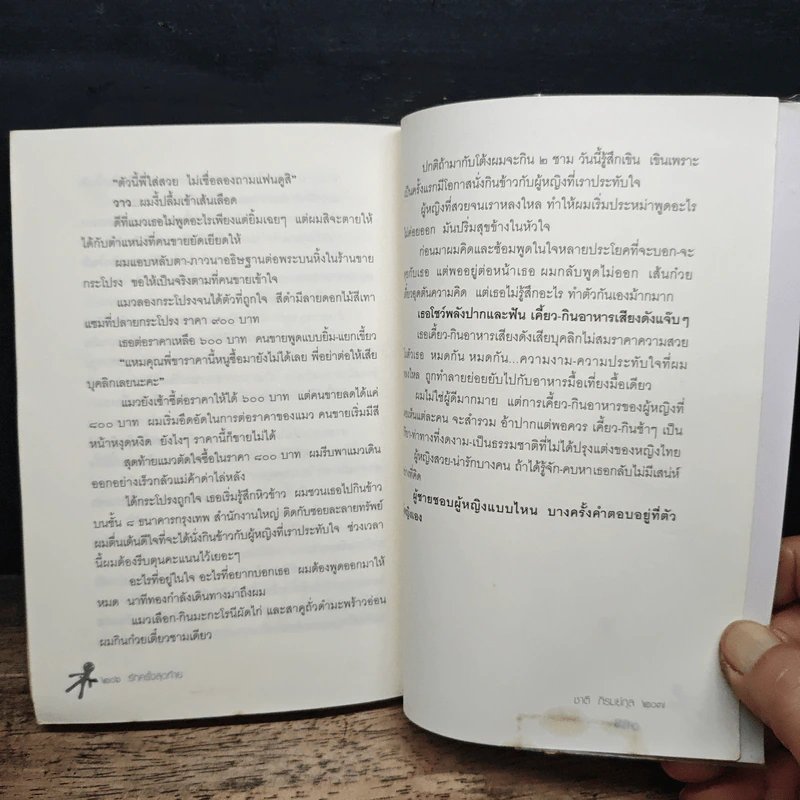 "ตัวนี้พี่ใส่สวย ไม่เชื่อลองถามแฟนดูสิ"
วาว...ผมงี้ปลื้มเข้าเส้นเลือด
ดีที่แมวเธอไม่พูดอะไรเพียงแต่ยิ้มเฉยๆ แต่ผมสิจะตายให้
ได้กับตำแหน่งที่คนขายยัดเยียดให้
ผมแอบหลับตา-ภาวนาอธิษฐานต่อพระบนหิ้งในร้านขาย
กระโปรง ขอให้เป็นจริงตามที่คนขายเข้าใจ
แมวลองกระโปรงจนได้ตัวที่ถูกใจ สีดำมีลายดอกไม้สีเทา
แซมที่ปลายกระโปรง ราคา ๙๐๐ บาท
เธอต่อราคาเหลือ ๖๐๐ บาท คนขายพูดแบบยิ้ม-แยกเขี้ยว
"แหมคุณพี่ขาราคานี้หนูซื้อมายังไม่ได้เลย พี่อย่าต่อให้เสีย
บุคลิกเลยนะคะ"
แมวยังเซ้าซี้ต่อราคาให้ได้ ๖๐๐ บาท แต่คนขายลดได้แค่
๘๐๐ บาท ผมเริ่มอึดอัดในการต่อราคาของแมว คนขายเริ่มมีสี
หน้าหงุดหงิด ยังไงๆ ราคานี้ก็ขายไม่ได้
สุดท้ายแมวตัดใจซื้อในราคา ๘๐๐ บาท ผมรีบพาแมวเดิน
ออกอย่างเร็วกลัวแม่ค้าด่าไล่หลัง
ได้กระโปรงถูกใจ เธอเริ่มรู้สึกหิวข้าว ผมชวนเธอไปกินข้าว
บนชั้น ๘ ธนาคารกรุงเทพ สำนักงานใหญ่ ติดกับซอยละลายทรัพย์
ผมตื่นเต้นดีใจที่จะได้นั่งกินข้าวกับผู้หญิงที่เราประทับใจ ช่วงเวลา
นี้ผมต้องรีบตุนคะแนนไว้เยอะๆ
อะไรที่อยู่ในใจ อะไรที่อยากบอกเธอ ผมต้องพูดออกมาให้
หมด นาทีทองกำลังเดินทางมาถึงผม
แมวเลือก-กินมะกะโรนีผัดไก่ และสาคูถั่วดำมะพร้าวอ่อน
ผมกินก๋วยเตี๋ยวชามเดียว
๒๐๖ รักครั้งสุดท้าย
ปกติถ้ามากับโต้งผมจะกิน ๒ ชาม วันนี้รู้สึกเขิน เขินเพราะ
เป็นครั้งแรกมีโอกาสนั่งกินข้าวกับผู้หญิงที่เราประทับใจ
ผู้หญิงที่สวยจนเราหลงใหล ทำให้ผมเริ่มประหม่าพูดอะไร
ไม่ค่อยออก มันปริ่มสุขข้างในหัวใจ
ก่อนมาผมคิดและซ้อมพูดในใจหลายประโยคที่จะบอก-จะ
คุยกับเธอ แต่พออยู่ต่อหน้าเธอ ผมกลับพูดไม่ออก เส้นก๋วย
เตี๋ยวอุดตันความคิด แต่เธอไม่รู้สึกอะไร ทำตัวกันเองม้ากมาก
เธอโชว์พลังปากและฟัน เคี้ยว-กินอาหารเสียงดังแจ๊บๆ
เธอเคี้ยว-กินอาหารเสียงดังเสียบุคลิกไม่สมราคาความสวย
ในตัวเธอ หมดกัน หมดกัน...ความงาม-ความประทับใจที่ผม
หลงใหล ถูกทำลายย่อยยับไปกับอาหารมื้อเที่ยงมื้อเดียว
ผมไม่ใช่ผู้ดีมากมาย แต่การเคี้ยว-กินอาหารของผู้หญิงที่
แต่ละคน จะสำรวม อ้าปากแต่พอควร เคี้ยว-กินช้าๆ เป็น
ท่าทางที่งดงาม-เป็นธรรมชาติที่ไม่ได้ปรุงแต่งของหญิงไทย
ผู้หญิงสวย-น่ารักบางคน ถ้าได้รู้จัก-คบหาเธอกลับไม่มีเสน่ห์
อย่างที่คิด
ผู้ชายชอบผู้หญิงแบบไหน บางครั้งคำตอบอยู่ที่ตัว
ผู้หญิงเอง
ชาติ ภิรมย์กุล ๒๐๗